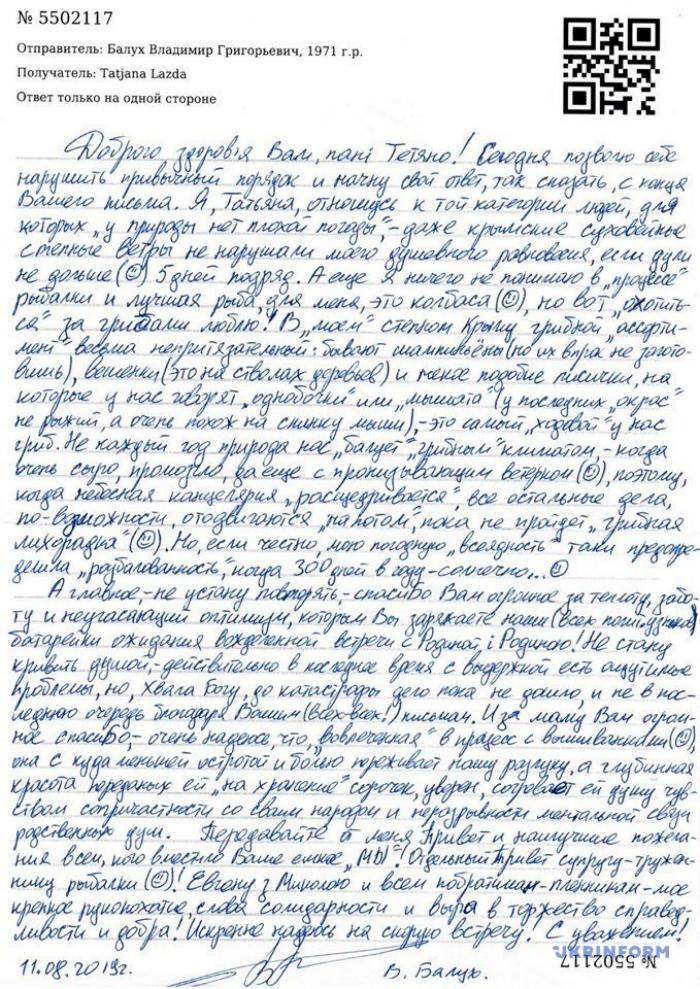 № 5502117
Отправитель: Балух Владимир Григорьевич, 1971 г.р.
Получатель: Tatjana Lazda
Ответ только на одной стороне
Доброго здоров'я Вам, пані Тетяно! Сегодня позволю себе
нарушить привычный порядок и начну свой ответ, так сказать, с конца
Вашего письма. Я, Татьяна, отношусь к той категории людей, для
которых „у природы нет плохой погоды", – даже крымские суховейные
степные ветры не нарушали моего душевного равновесия, если дули
не дольше (☺) 5 дней подряд. А еще я ничего не понимаю в „процессе"
рыбалки и лучшая рыба, для меня, это колбаса (☺), но вот „охотить-
ся" за грибами люблю! В „моем" степном Крыму грибной „ассорти-
мент" весьма непритязательный: бывают шампиньёны (но их впрок не загото-
вишь), вешенки (это на стволах деревьев) и некое подобие лисички, на
которые у нас говорят „однобочки" или „мышата" (у последних „окрас"
не рыжий, а очень похож на спинку мыши), – это самый „ходовой" у нас
гриб. Не каждый год природа нас „балует" „грибным" климатом, – когда
очень сыро, промозгло, да еще с пронизывающим ветерком (☺), поэтому,
когда небесная канцелярия „расщедривается", все остальные дела,
по-возможности, отодвигаются „на потом", пока не пройдет „грибная
лихорадка" (☺). Но, если честно, мою погодную „всеядность" таки предопре-
делила „разбалованность", когда 300 дней в году – солнечно... ☺
А главное, – не устану повторять, – спасибо Вам огромное за теплоту, забо-
ту и неугасающий оптимизм, которым Вы заряжаете наши (всех
батарейки ожидания вожделенной встречи с Родиной і Родиною! Не стану
кривить душой, – действительно в последнее время с выдержкой есть ощутимые
проблемы, но, хвала Богу, до катастрофы дело пока не дошло, и не в пос-
леднюю очередь благодаря Вашим (всех-всех!) письмам. И за маму Вам огром-
ное спасибо, – очень надеюсь, что „вовлеченная" в процесс с вышиванками (☺)
она с куда меньшей остротой и болью переживает нашу разлуку, а глубинная
красота переданых ей „на хранение" сорочек, уверен, согревает ей душу чув-
ством сопричастности со своим народом и неразрывности ментальной связи
родственных душ. Передавайте от меня Привет и наилучшие пожела-
ния всем, кого вместило Ваше емкое „МЫ"! Отдельный Привет супругу – тружен-
нику рыбалки (☺)! Евгену з Миколою и всем побратимам-пленникам – мое
крепкое рукопожатие, слова солидарности и вера в торжество справед-
ливости и добра! Искренне надеюсь на скорую встречу! С уважением!
11.08.2019г. В. Балух.
UKRINFORM
№ 5502117